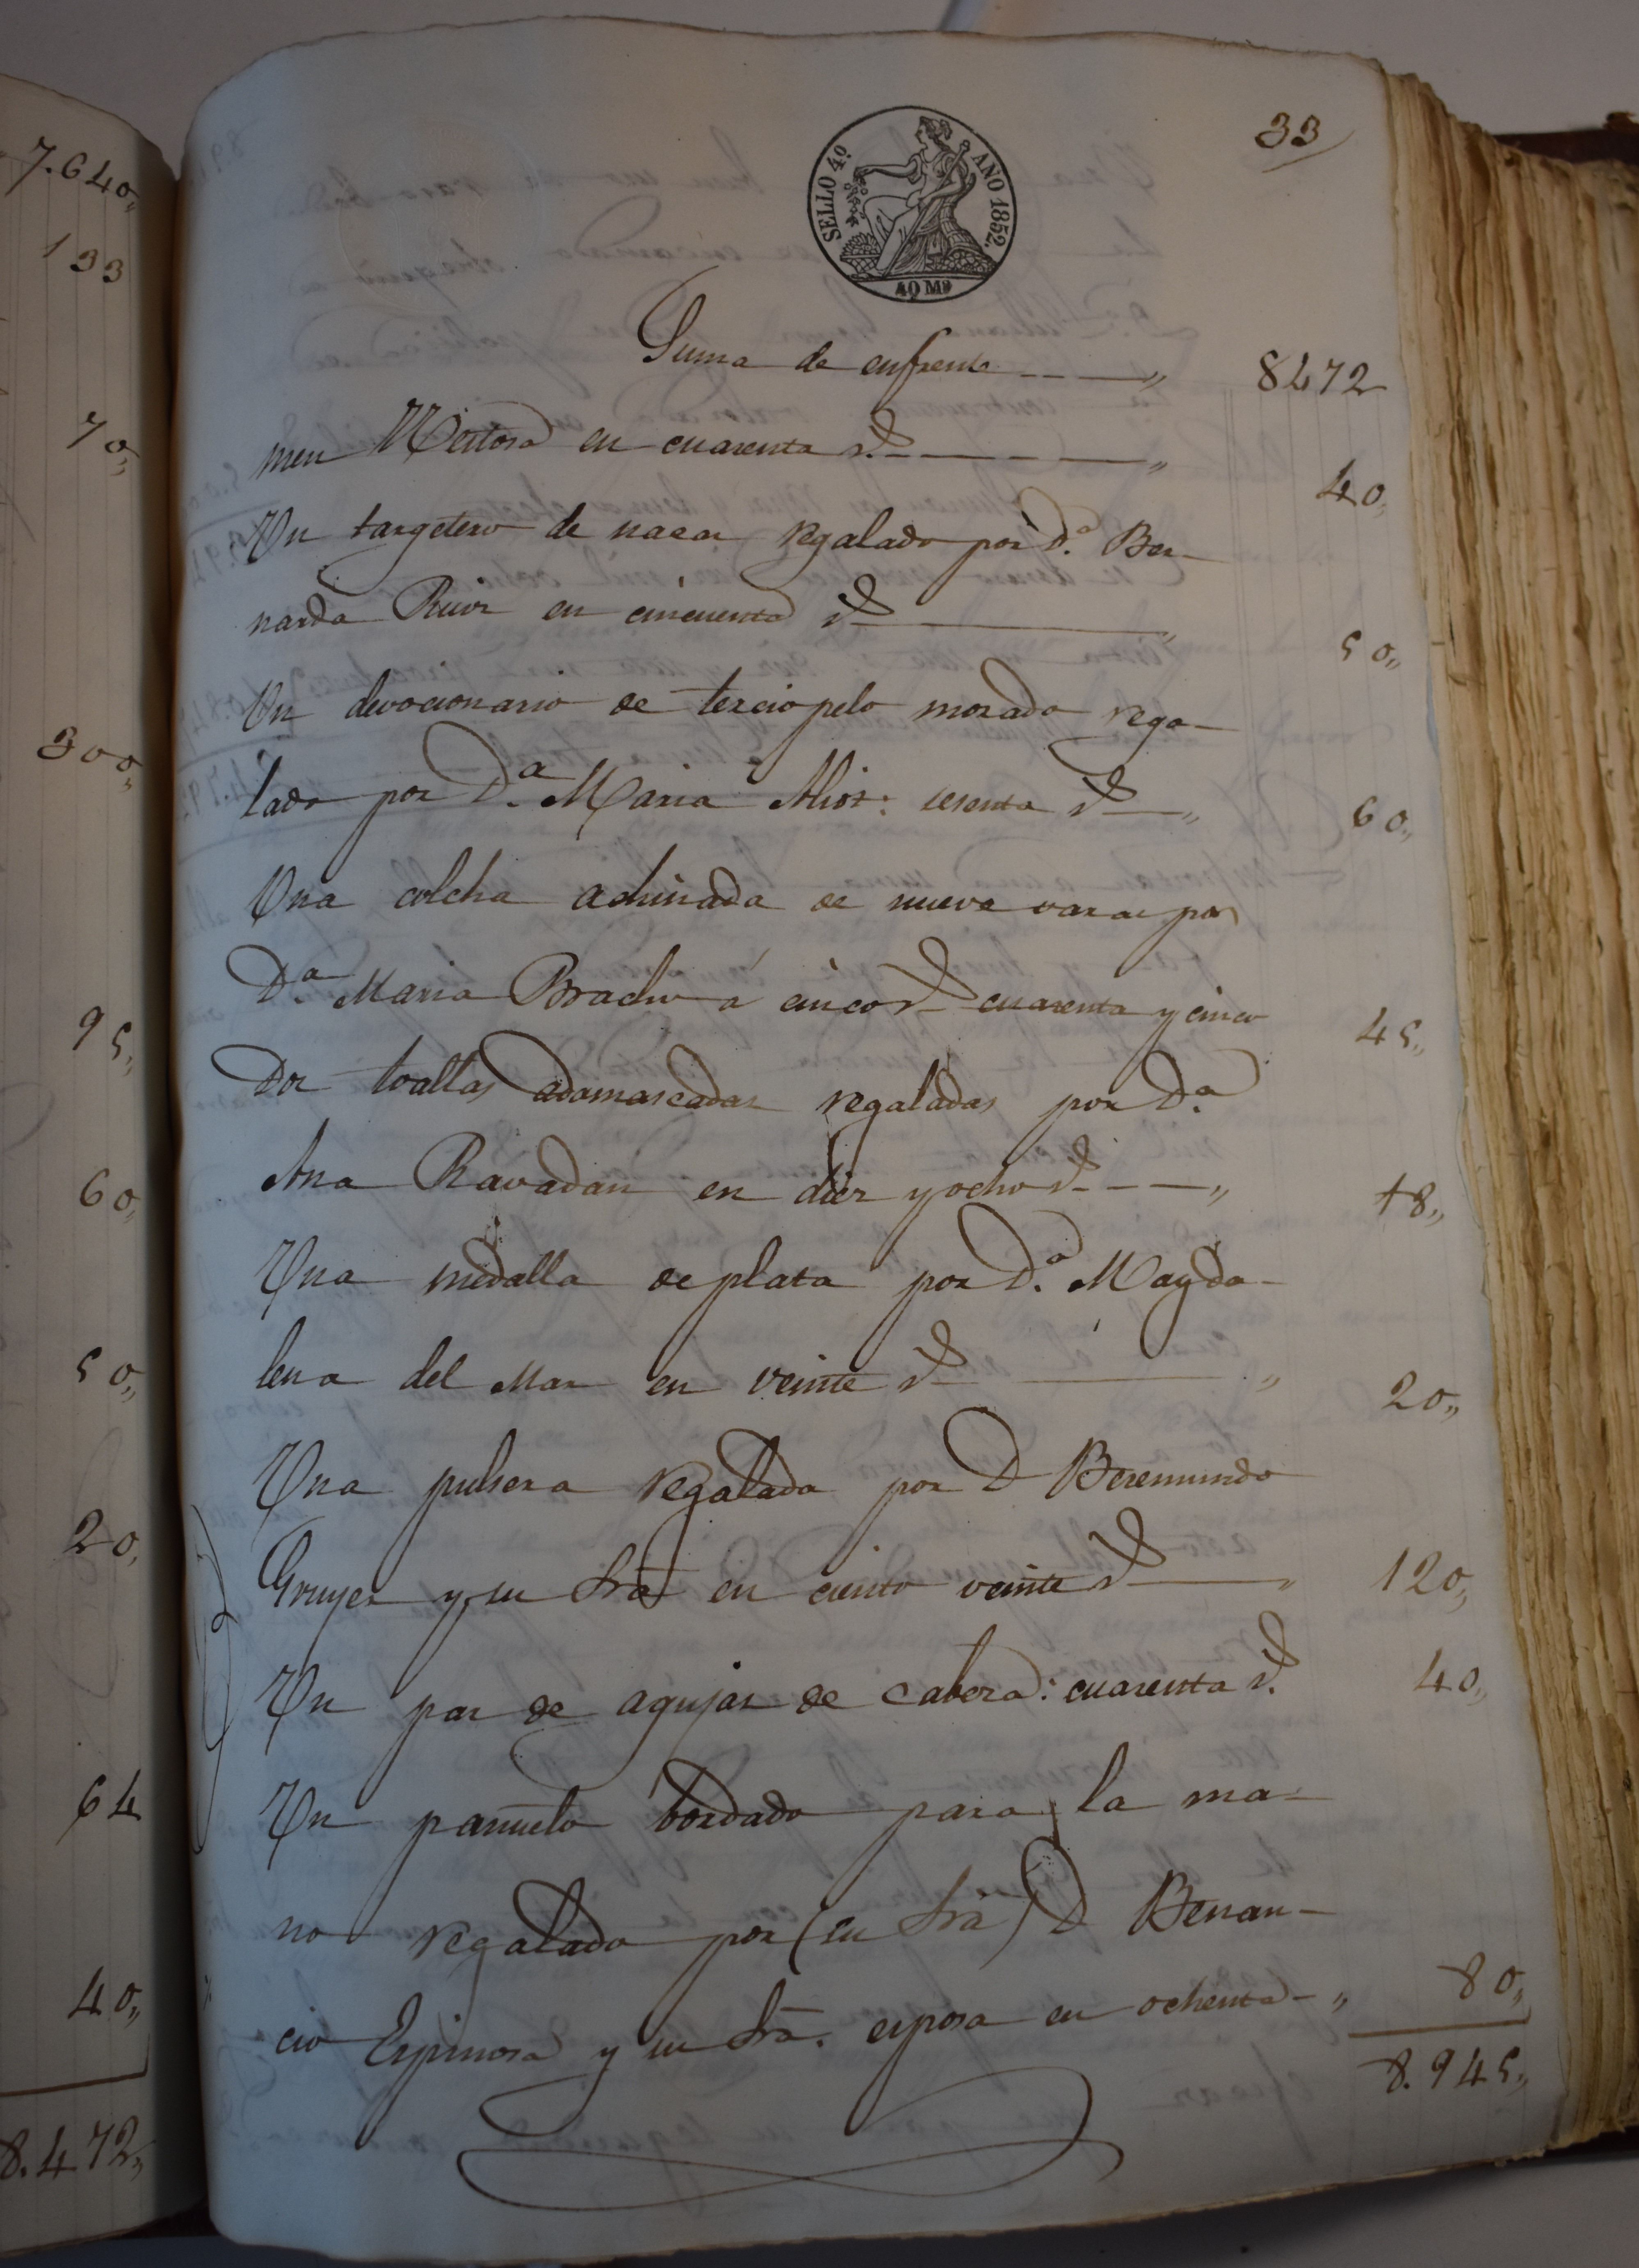 7.640,,
133
70,,
300,,
95,,
60,,
50,,
20,
64
40,,
8.472,,
33
SELLO 4º. AÑO 1852.
40 Mº
Suma de enfrente ,, 8472
men Meitosa en cuarenta r.s ,, 40,
Un targetero de nacar regalado por D.ª Ber-
narda Ruiz en cincuenta r.s ,, 50,,
Un devocionario de terciopelo morado rega-
lado por D.ª Maria Alioz: sesenta r.s ,, 60,,
Una colcha achinada de nueve varas por
D.ª Maria Bracho á cinco r.s cuarenta y cinco 45,,
Dos toallas adamascadas regaladas por D.ª
Ana Ravadan en diez y ocho r.s ,, 18,,
Una medalla de plata por D.ª Magda-
lena del Mar en veinte r.s ,, 20,,
Una pulsera regalada por D Beremundo
Gruyer y su Sra en ciento veinte r.s ,, 120,,
Un par de agujas de cabeza: cuarenta r.s 40,,
Un pañuelo bordado para la ma-
no regalado por (su Sra) D Benan-
cio Espinosa y su Sra. esposa en ochenta ,, 80,,
8.945,,